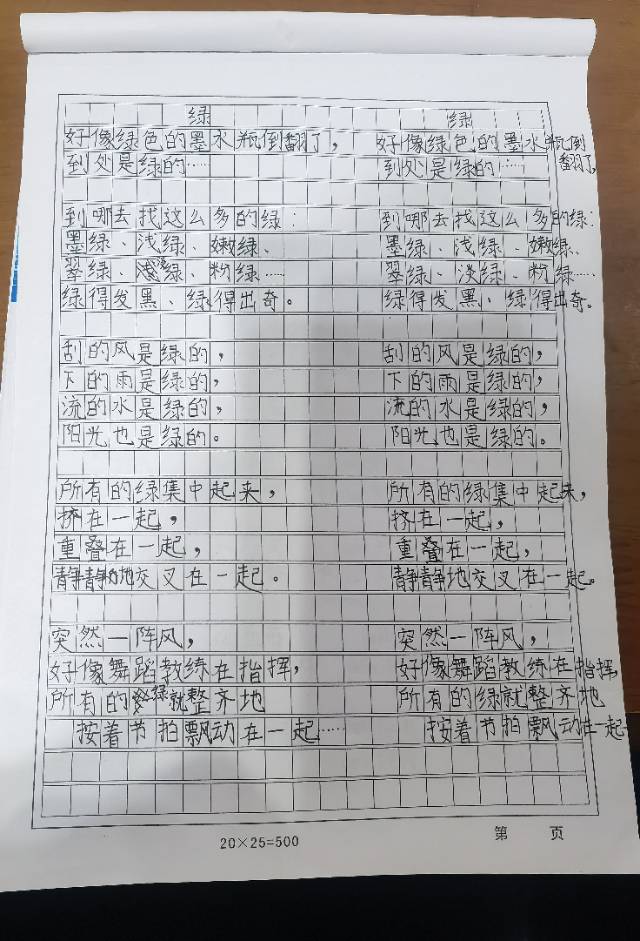 绿
好像绿色的墨水瓶倒翻了，
到处是绿的……
到哪去找这么多的绿：
墨绿、浅绿、嫩绿、
翠绿、淡绿、粉绿……
绿得发黑、绿得出奇。
刮的风是绿的，
下的雨是绿的，
流的水是绿的，
阳光也是绿的。
所有的绿集中起来，
挤在一起，
重叠在一起，
静静地交叉在一起。
突然一阵风，
好像舞蹈教练在指挥，
所有的绿就整齐地
按着节拍飘动在一起……
绿
好像绿色的墨水瓶倒
翻了，
到处是绿的……
到哪去找这么多的绿：
墨绿、浅绿、嫩绿、
翠绿、淡绿、粉绿……
绿得发黑、绿得出奇。
刮的风是绿的，
下的雨是绿的，
流的水是绿的，
阳光也是绿的。
所有的绿集中起来，
挤在一起，
重叠在一起，
静静地交叉在一起。
突然一阵风，
好像舞蹈教练在指挥，
所有的绿就整齐地
按着节拍飘动在一起
20×25=500
第 页